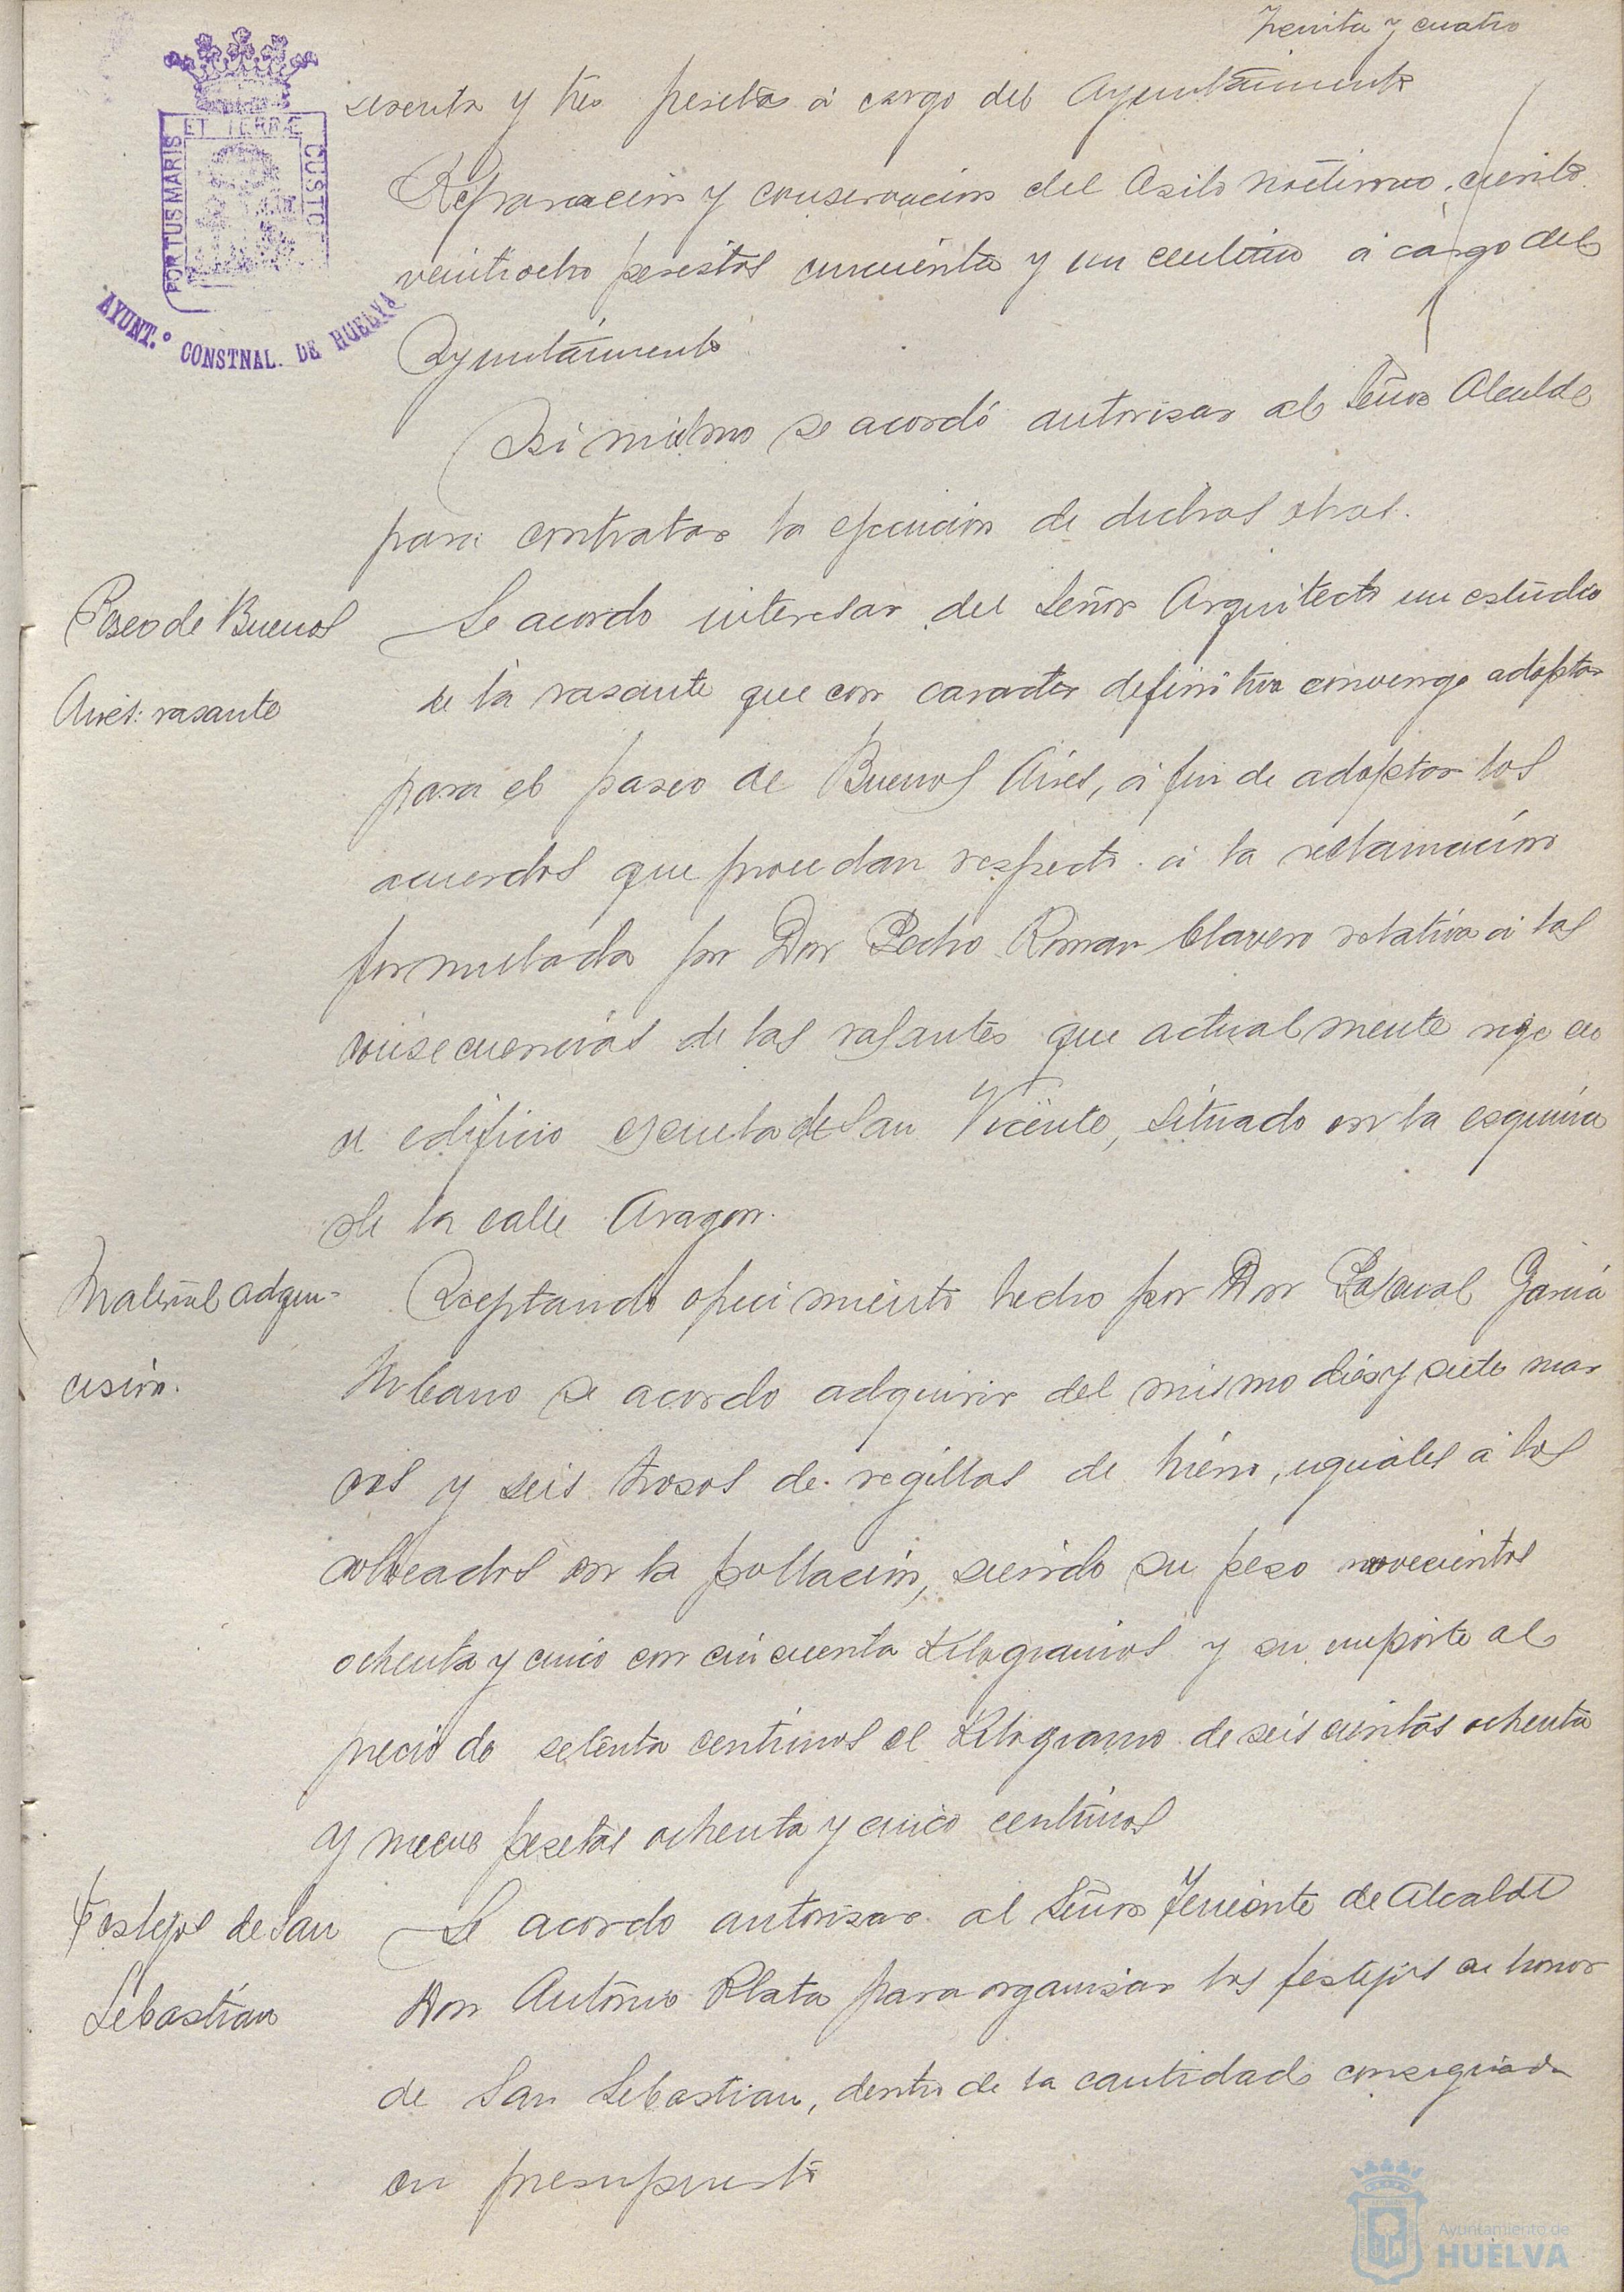 Treinta y cuatro
ET TERRÆ
PORTUS MARIS
CUSTO
AYUNT.º CONSTNAL. DE HUELVA
sesenta y tres pesetas á cargo del Ayuntamiento
Reparación y conservación del Asilo nocturno, ciento
veintiocho pesetas cincuenta y un centimo á cargo del
Ayuntamiento
Asi mismo se acordó autorisar al Señor Alcalde
para contratar la ejecucion de dichas obras.
Paseo de Buenos
Aires: rasante
Se acordo interesar del Señor Arquitecto un estudio
de la rasante que con caracter definitivo convenga adoptar
para el paseo de Buenos Aires, á fin de adoptar los
acuerdos que procedan respecto á la reclamación
formulada por Don Pedro Roman Clavero relativa á las
consecuencias de las rasantes que actualmente rige en
el edificio escuela de San Vicente, situado en la esquina
de la calle Aragon.
Material adqui-
cisión.
Aceptando ofrecimiento hecho por Don Pascual Garcia
Urbano se acordo adquirir del mismo dies y siete mar
cos y seis trosos de regillas de hierro, iguales á los
colocados en la poblacion, siendo su peso novecientos
ochenta y cinco con cincuenta Kilogramos y su importe al
precio de setenta centimos el Kilogramo de seiscientas ochenta
y nueve pesetas ochenta y cinco centimos
Festejos de San
Sebastian
Se acordo autorisar al Señor Teniente de Alcalde
Don Antonio Plata para organisar los festejos en honor
de San Sebastian, dentro de la cantidad consignada
en presupuesto
Ayuntamiento de
HUELVA